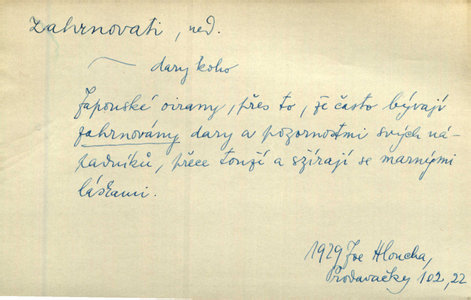 zahrnovati, ned.
— dary koho
Japonské oirany, přes to, že často bývají
zahrnovány dary a pozornostmi svých ná-
padníků, přece touží a szírají se marnými
láskami.
1929 Joe Hloucha,
Prodavačky 102, 22